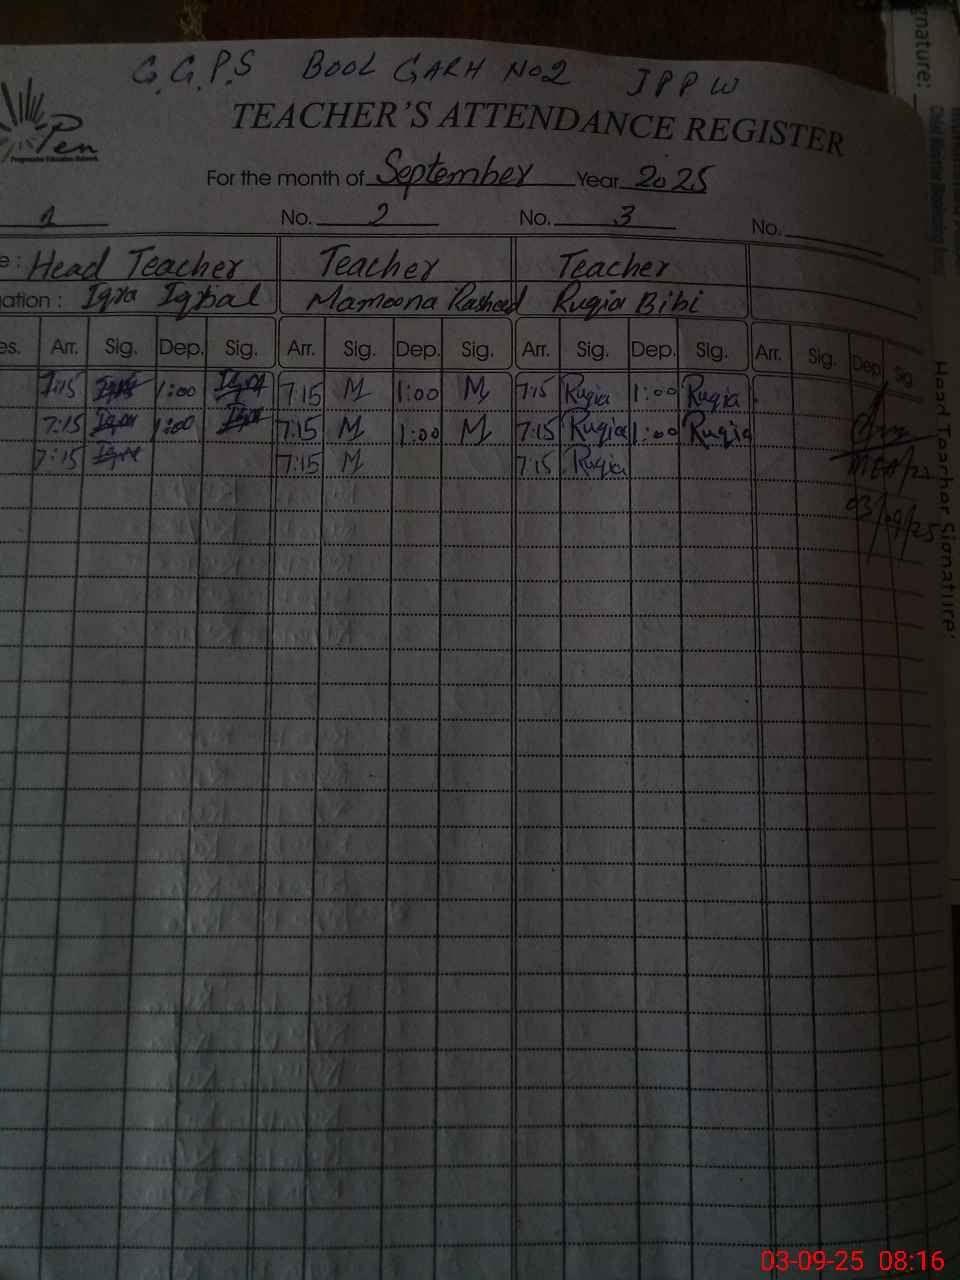 G.G.P.S BOOL GARH NO2 JPPW
Pen
Progressive Education Network
TEACHER'S ATTENDANCE REGISTER
For the month of September Year 2025
1 No. 2 No. 3 No.
e: Head Teacher Teacher Teacher
nation: Iqra Iqbal Mamoona Rasheed Ruqia Bibi
es. Arr. Sig. Dep. Sig. Arr. Sig. Dep. Sig. Arr. Sig. Dep. Sig. Arr. Sig. Dep. Sig.
7:15 Iqra 1:00 Iqra 7:15 M 1:00 M 7:15 Ruqia 1:00 Ruqia
7:15 Iqra 1:00 Iqra 7:15 M 1:00 M 7:15 Ruqia 1:00 Ruqia
7:15 Iqra 7:15 M 7:15 Ruqia
03/09/25
nature:
Head Teacher Signature:
03-09-25 08:16